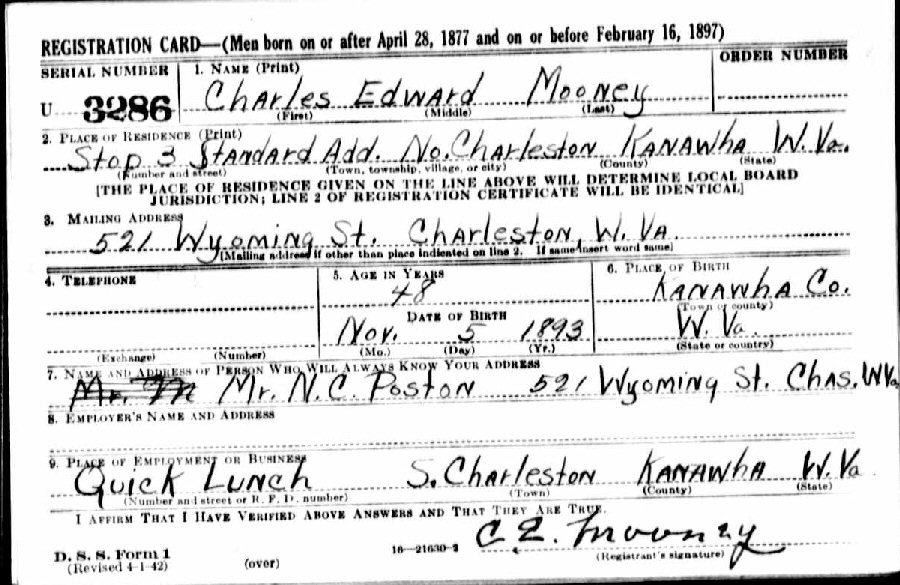 REGISTRATION CARD—(Men born on or after April 28, 1877 and on or before February 16, 1897)
SERIAL NUMBER
1. NAME (Print)
ORDER NUMBER
U 3286
Charles Edward Mooney
(First) (Middle) (Last)
2. PLACE OF RESIDENCE (Print)
Stop 3 Standard Add. No. Charleston Kanawha W. Va.
(Number and street) (Town, township, village, or city) (County) (State)
[THE PLACE OF RESIDENCE GIVEN ON THE LINE ABOVE WILL DETERMINE LOCAL BOARD
JURISDICTION; LINE 2 OF REGISTRATION CERTIFICATE WILL BE IDENTICAL]
3. MAILING ADDRESS
521 Wyoming St. Charleston, W. Va
[Mailing address if other than place indicated on line 2. If same insert word same]
4. TELEPHONE
5. AGE IN YEARS
6. PLACE OF BIRTH
48
Kanawha Co.
(Town or county)
DATE OF BIRTH
Nov. 5 1893
W. Va.
(Exchange) (Number)
(Mo.) (Day) (Yr.)
(State or country)
7. NAME AND ADDRESS OF PERSON WHO WILL ALWAYS KNOW YOUR ADDRESS
Mr. N. C. Poston 521 Wyoming St. Chas. W Va.
8. EMPLOYER'S NAME AND ADDRESS
9. PLACE OF EMPLOYMENT OR BUSINESS
Quick Lunch S. Charleston Kanawha W. Va
(Number and street or R. F. D. number) (Town) (County) (State)
I AFFIRM THAT I HAVE VERIFIED ABOVE ANSWERS AND THAT THEY ARE TRUE.
C E. Mooney
D. S. S. Form 1
(Revised 4-1-42)
(over)
16—21630-2
(Registrant's signature)